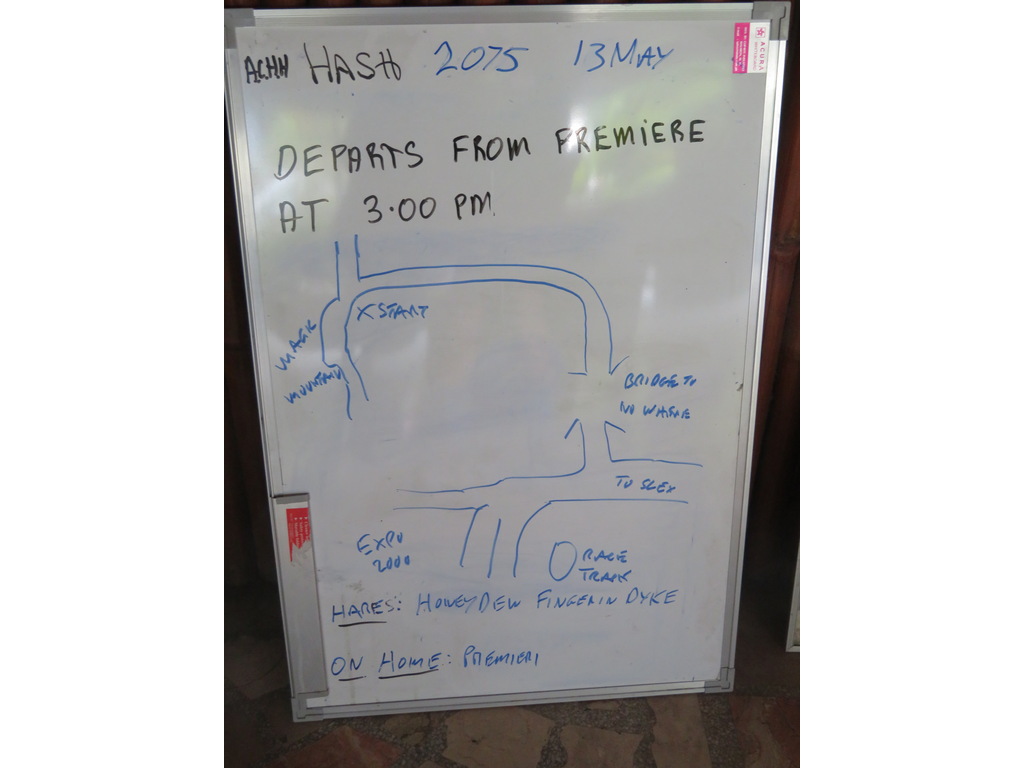 A.C.H.H HASH 2075 13 MAY
ACURA
DEPARTS FROM PREMIERE
AT 3.00 PM
X START
MAGIC
MOUNTAIN
BRIDGE TO
NO WHERE
TO SLEX
EXPO
2000
RACE
TRACK
HARES: HONEYDEW FINGER IN DYKE
ON HOME: PREMIERI